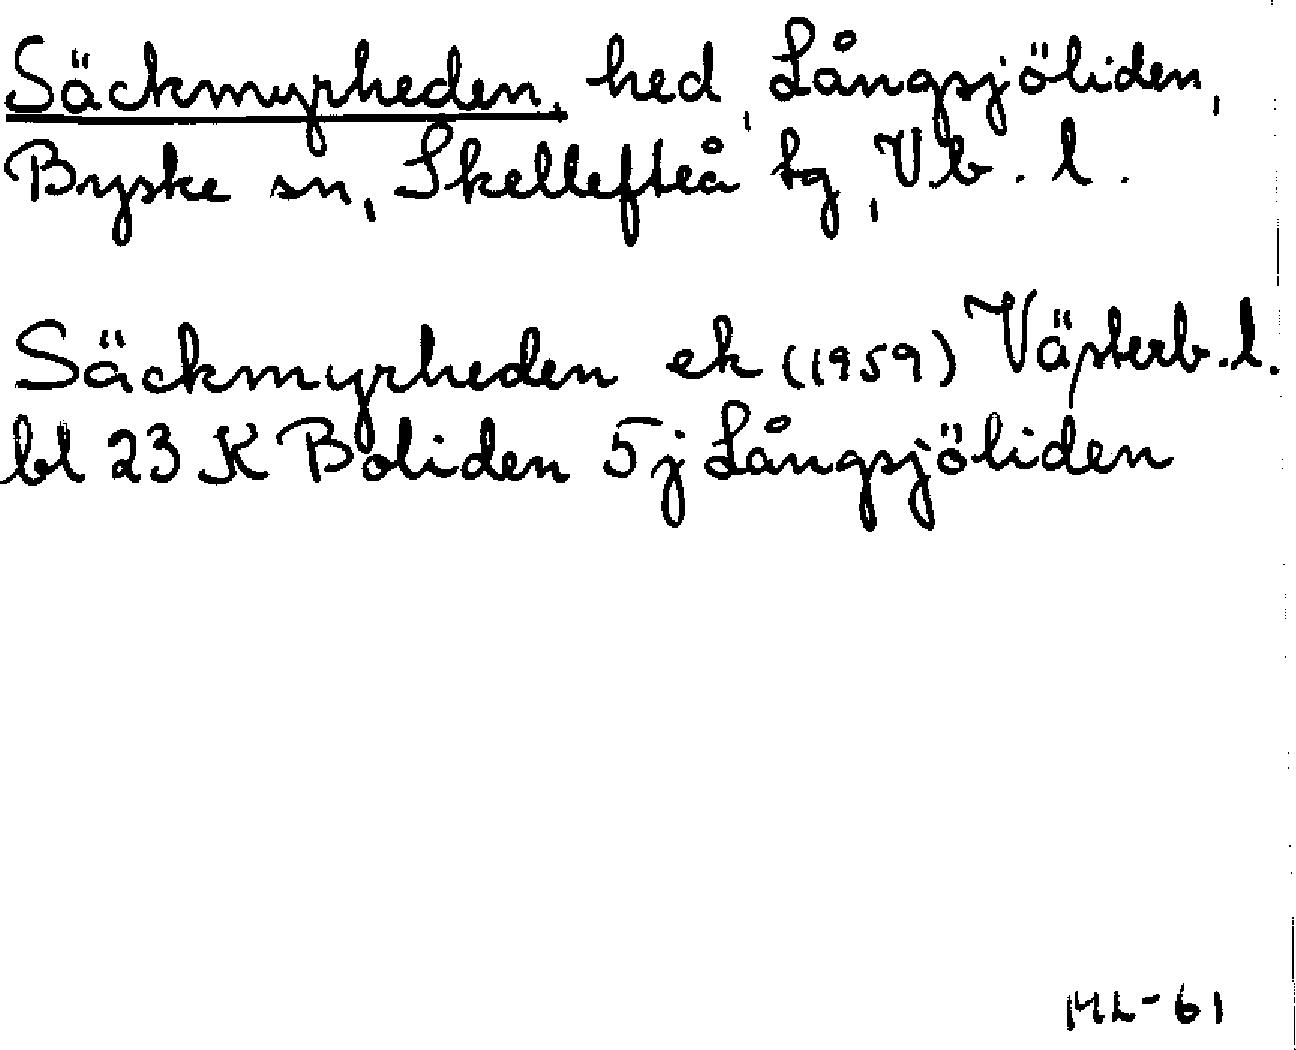 Säckmyrheden, hed, Långsjöliden,
Byske sn, Skellefteå tg, Vb. l.
Säckmyrheden ek (1959) Västerb. l.
bl 23 K Boliden 5j Långsjöliden
ML-61